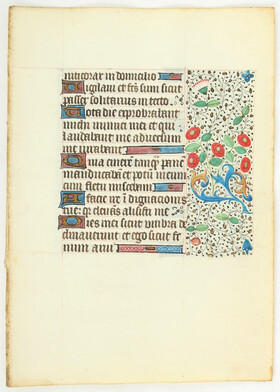 nticorax in domicilio
Vigilaui et factus sum sicut
passer solitarius in tecto
Tota die exprobrabant
michi inimici mei et qui
laudabant me aduersum
me iurabant
Quia cinerem tanquam panem
manducabam et potum meum
cum fletu miscebam
A facie ire indignacionis
tue: quia eleuans allisisti me
Dies mei sicut umbra de
clinauerunt et ego sicut fe
num arui